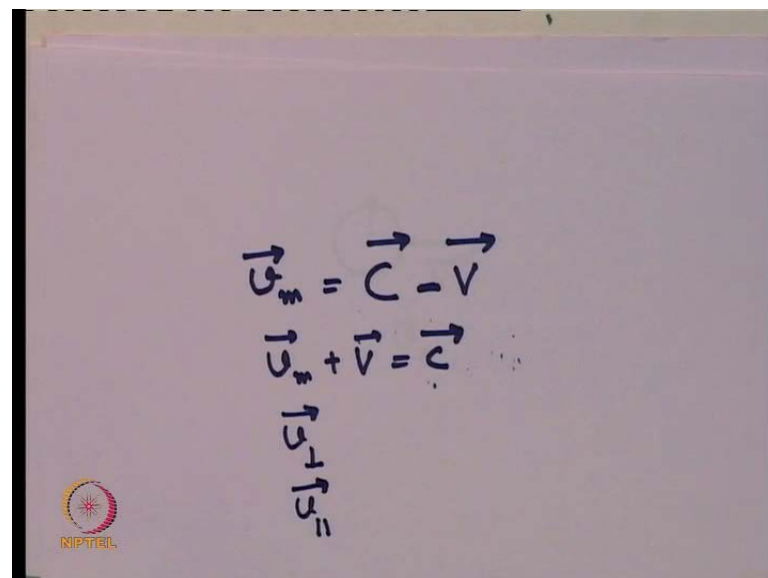 v⃗ₘ = C⃗ - V⃗
v⃗ₘ + V⃗ = C⃗
v⃗⊥
v⃗=
NPTEL